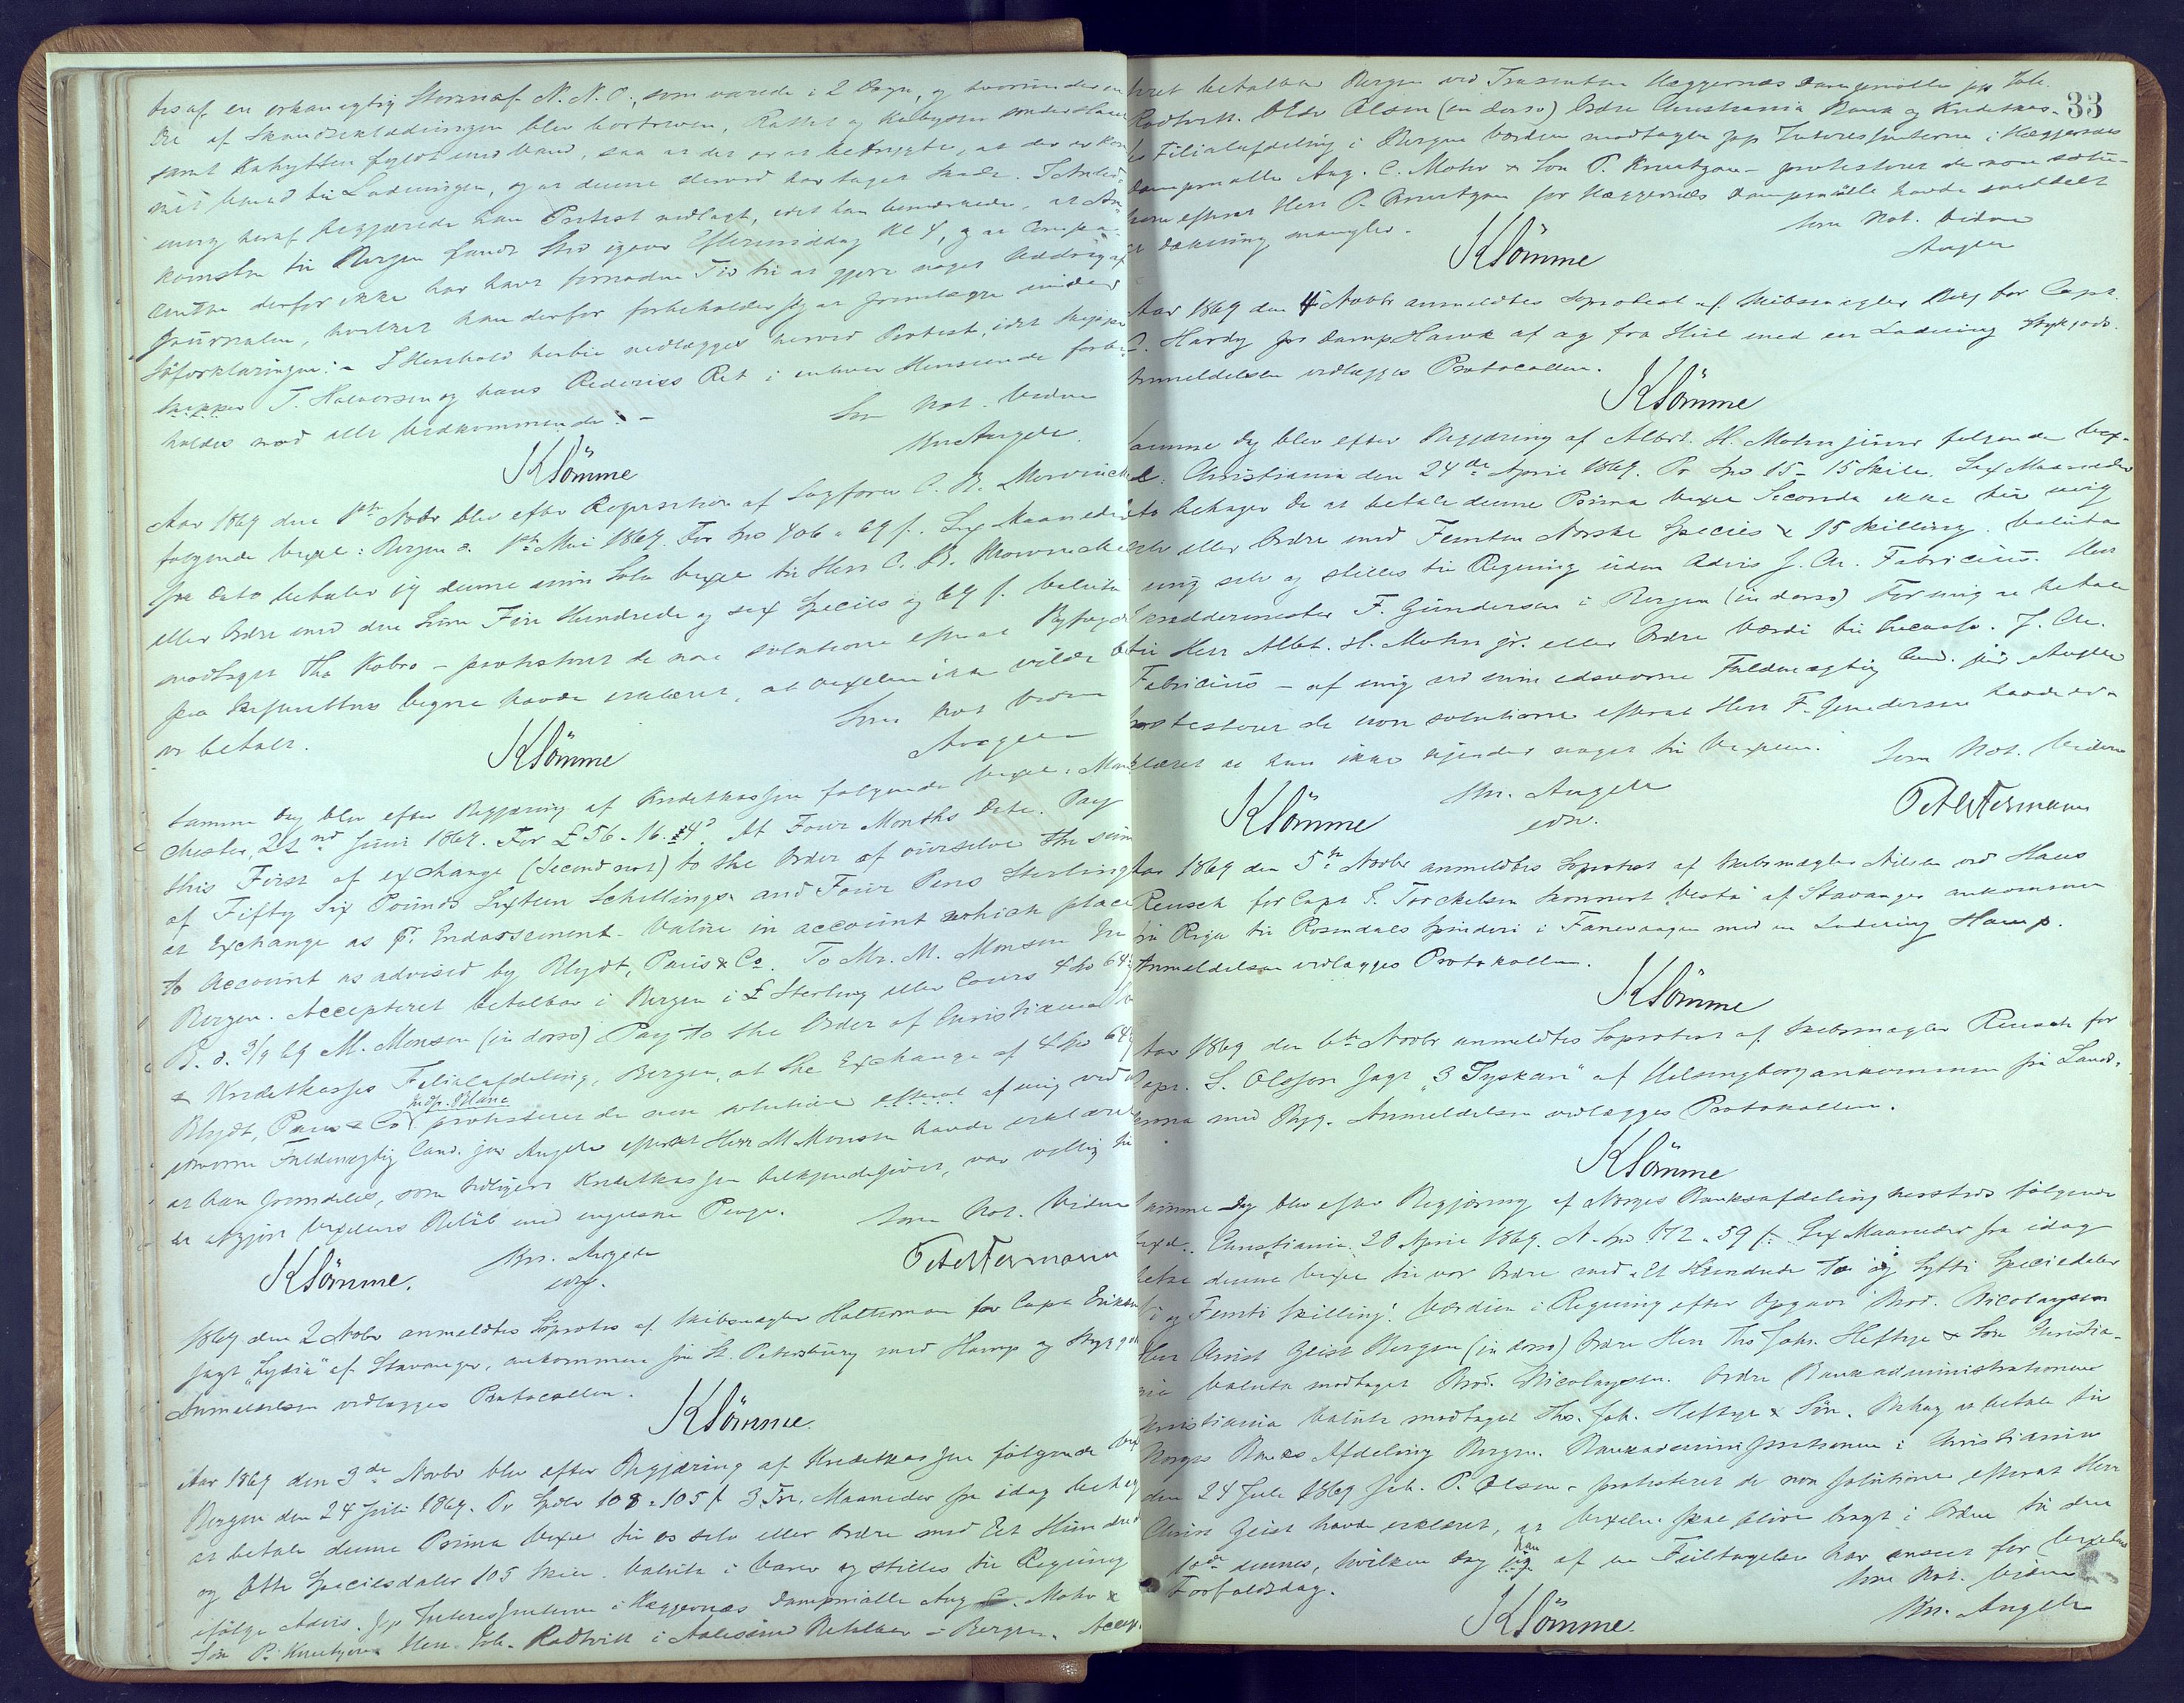 tes af en orkanagtig Storm af N.N.O., som varede i 2 Dage, og hvorunder en
Del af Skandseklædningen blev bortreven, Rattet og Kabyssen sønderslaaet
samt Kahytten fyldt med Vand, saa at det er at befrygte, at der er kom-
met Vand til Ladningen, og at denne derved har taget Skade. I Anled-
ning heraf begjærede han Protest nedlagt, idet han bemærkede, at An-
komsten til Bergen fandt Sted igaar Eftermiddag Kl 4, og at Compa-
renten derfor ikke har havt fornøden Tid til at gjøre noget Uddrag af
Journalen, hvilket han derfor forbeholder sig at fremlægge under
Søforklaringen. – I Henhold hertil nedlægges herved Protest, idet Skipper
Skipper T. Halvorsen og hans Rederies Ret i enhver Henseende forbe-
holdes mod alle Vedkommende. –
Som Not. Vidne
Kn Angell.
Klömme
Aar 1869 den 1ste Novbr blev efter Reqvisition af Sagfører C. B. Mowinckel
følgende Vexel: Bergen d. 1ste Mai 1869. For Spd 406 " 69 s. Sex Maaneder
fra Dato betaler jeg denne min Sola Vexel til Herr C. B. Mowinckel
eller Ordre med den Sum Fire Hundrede og sex Species og 69 s. Valuta
modtaget Ths Kobro – protesteret de non solutione efterat
paa Vegne havde erklæret, at Vexelen ikke vilde bli-
ve betalt.
Som Not Vidne
Angell
Klömme
Samme Dag blev efter Begjæring af Kreditkassen følgende Vexel: Man-
chester, 22nd Juni 1869. For £ 56 - 16. 4d. At Four Months Date. Pay
this First of exchange (Second not) to the Order of ourselve the sum
of Fifty Six Pounds Sixteen Schellings and Four Pens Sterling
at Exchange as pr. Endorssement. Value in account which place
to Account as advised by Blydt, Paus & Co. To Mr. M. Monsen
Bergen. Accepteret betalbar i Bergen i £ Sterling eller Cours 4 Sp 64
B. d. 3/9 69 M. Monsen (in dorso) Pay to the Order of Christiania B
& Kreditkasses Filialafdeling, Bergen, at the Exchange of 4 Sp 64
indf. Blanc
Blydt, Paus & Co protesteret de non solutione efterat af mig ved
edsvorne Fuldmægtig Cand. jur Angell efterat Herr M Monsen havde erklæret
at han fremdeles, som tidligere Kreditkassen bekjendtgivet, var villig til
at afgjøre Vexelens Beløb med engelske Penge.
Som Not. Vidne
Klömme. Kn. Angell Petellermann
edsv.
1869 den 2 Novbr anmeldtes Søprotest af Skibsmægler Halterman for Capt Eriksen
Jagt "Lydia" af Stavanger, ankommen fra St. Petersburg med Hamp og Stykgods
Anmeldelsen vedlægges Protocollen.
Klömme.
Aar 1869 den 3de Novbr blev efter Begjæring af Kreditkassen følgende Vex
Bergen den 24 Juli 1869. Pr Spdlr 108 " 105 s 3 Tre, Maaneder fra idag behag
at betale denne Prima Vexel til os selv eller Ordre med Et Hundrede
og Otte Speciesdaler 105 Skill. Valuta i Varer og stilles til Regning
ifølge Advis. for Interessenterne i Hæggernæs Dampmølle Aug C. Mohr &
Søn P. Knutzon Herr Joh. Rødtvitt i Aalesund Betalbar i Bergen. Accep-
33
teret betalbar Bergen ved Trassenten Hæggernæs Dampmølle Joh.
Rødtvitt. Oldr Olsen (in dorso) Ordre Christiania Bank og Kreditkas-
ses Filialafdeling i Bergen Værdien modtagen pp Interessenterne i Hæggernæs
Dampmølle Aug. C. Mohr & Søn P. Knutzon – protesteret de non solu-
tione efterat Herr P. Knutzon for Hæggernæs Dampmølle havde meddelt
at Dækning mangler.
Som Not. Vidne
Angell
Klömme
Aar 1869 den 4 Novbr anmeldtes Søprotest af Skibsmægler Berg for Capt.
C. Hardy for Damp Hawk af og fra Hull med en Ladning Stykgods.
Anmeldelsen vedlægges Protocollen.
Klömme
Samme Dag blev efter Begjæring af Albrt. H. Mohn junior følgende Vex-
el: Christiania den 24de April 1869. Pr Spd 15 - 15 Skill. Sex Maaneder
Dato behager De at betale denne Prima Vexel Seconda ikke til mig
selv eller Ordre med Femten Norske Species & 15 Skilling. Valuta
mig selv og stilles til Regning uden Advis J. Chr. Fabricius. Herr
Skræddermester F. Gundersen i Bergen (in dorso) For mig at betale
til Herr Albt. H. Mohn jr. eller Ordre Værdi til Incasso. J. Chr.
Fabricius – af mig ved min edsvorne Fuldmægtig Cand. jur Angell
protesteret de non solutione efterat Herr F. Gundersen havde er-
klæret at han ikke kjender noget til Vexelen.
Som Not. Vidne
Klömme Kn. Angell Petellermann
edsv.
Aar 1869 den 5te Novbr anmeldtes Søprotest af Skibsmægler Nilsen ved Hans
Reusch for Capt T. Torkelsen Skonnert "Vesta" af Stavanger ankommen
fra Riga til Rosendals Spinderi i Fanevaagen med en Ladning Hamp.
Anmeldelsen vedlægges Protokollen.
Klömme
Aar 1869 den 6te Novbr anmeldtes Søprotest af Skibsmægler Reusch for
Capt. S. Olsson Jagt "3 Tyskar" af Helsingborg ankommen fra Lands-
krona med Byg. Anmeldelsen vedlægges Protokollen.
Klömme
Samme Dag blev efter Begjæring af Norges Banksafdeling hersteds følgende
Vexel: Christiania, 28 April 1869. N. Spd 172 " 59 s. Sex Maaneder fra idag
betal denne Vexel til vor Ordre med Et Hundrede To og Sytti Speciedaler
Ni og Femti Skilling. Værdien i Regning efter Opgave Brød. Nicolaysen
Herr Christ Geist Bergen (in dorso) Ordre Herr Ths Joh. Heftye & Søn Christia-
nia Valuta modtaget Brød. Nicolaysen. Ordre Bankadministrationen
Christiania Valuta modtaget Ths. Joh. Heftye & Søn. Behag at betale til
Norges Banks Afdeling Bergen. Bankadministrationen i Christiania
den 24 Juli 1869 Joh. P. Olsen – protesteret de non solutione efterat Herr
Christ Geist havde erklæret, at Vexelen skal blive bragt i Orden til den
10de dennes, hvilken Dag han af en Feiltagelse har anseet for Vexelens
Forfaldsdag.
Som Not. Vidne
Kn. Angell
Klömme.